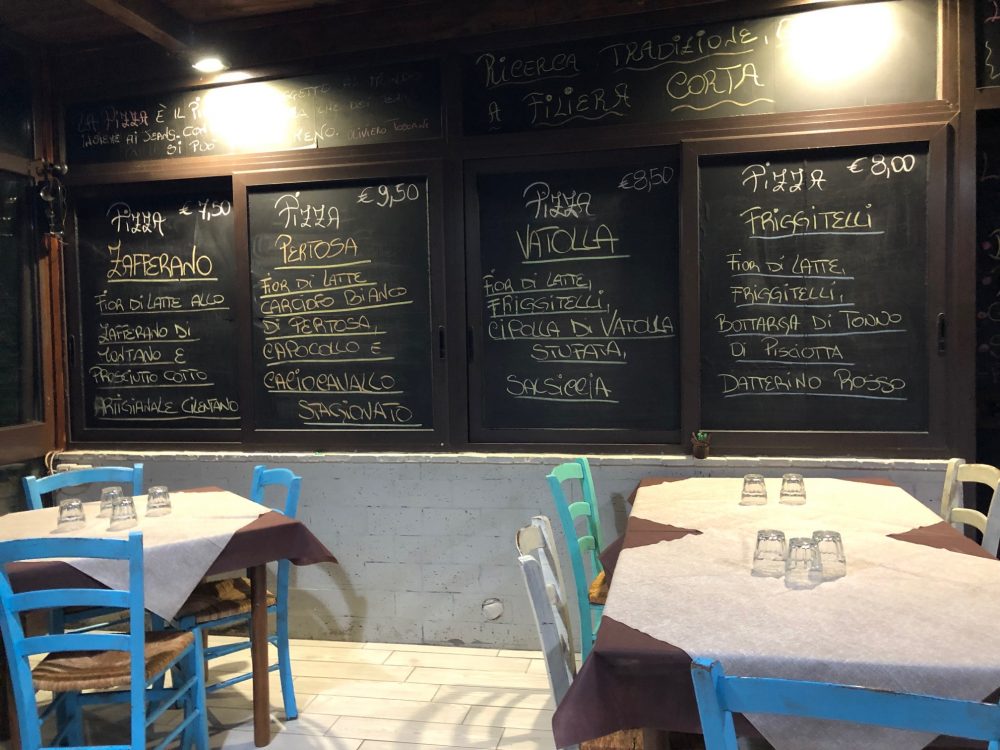 LA PIZZA È IL
INSIEME AI JEANS. CON
SI PUÒ OLIVIERO TOSCANI
RICERCA, TRADIZIONE,
A FILIERA CORTA
PIZZA € 7,50
ZAFFERANO
FIOR DI LATTE ALLO
ZAFFERANO DI
MONTANO E
PROSCIUTTO COTTO
ARTIGIANALE CILENTANO
PIZZA € 9,50
PERTOSA
FIOR DI LATTE
CARCIOFO BIANCO
DI PERTOSA,
CAPOCOLLO E
CACIOCAVALLO
STAGIONATO
PIZZA € 8,50
VATOLLA
FIOR DI LATTE,
FRIGGITELLI,
CIPOLLA DI VATOLLA
STUFATA,
SALSICCIA
PIZZA € 8,00
FRIGGITELLI
FIOR DI LATTE,
FRIGGITELLI,
BOTTARGA DI TONNO
DI PISCIOTTA
DATTERINO ROSSO